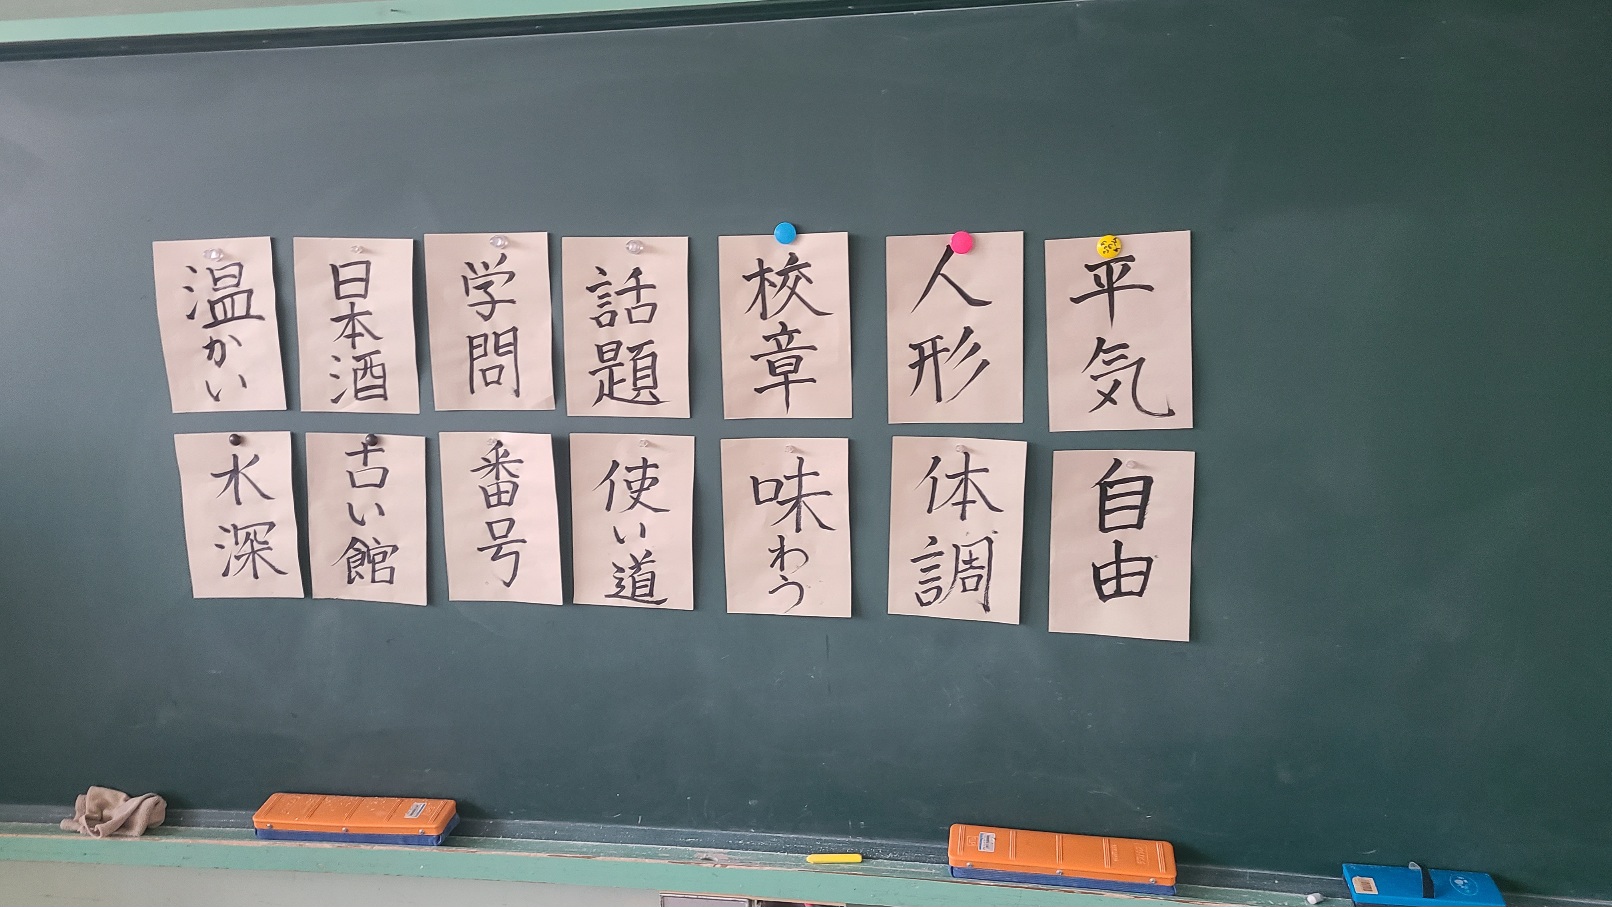 温かい
日本酒
学問
話題
校章
人形
平気
水深
古い館
番号
使い道
味わう
体調
自由